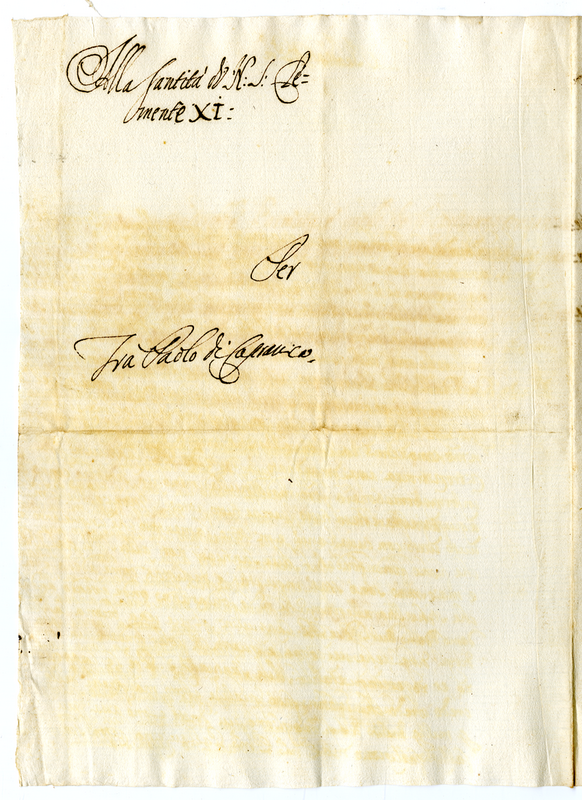 Alla Santità di N: S: Cle=
mente XI:
Per
Fra Paolo di